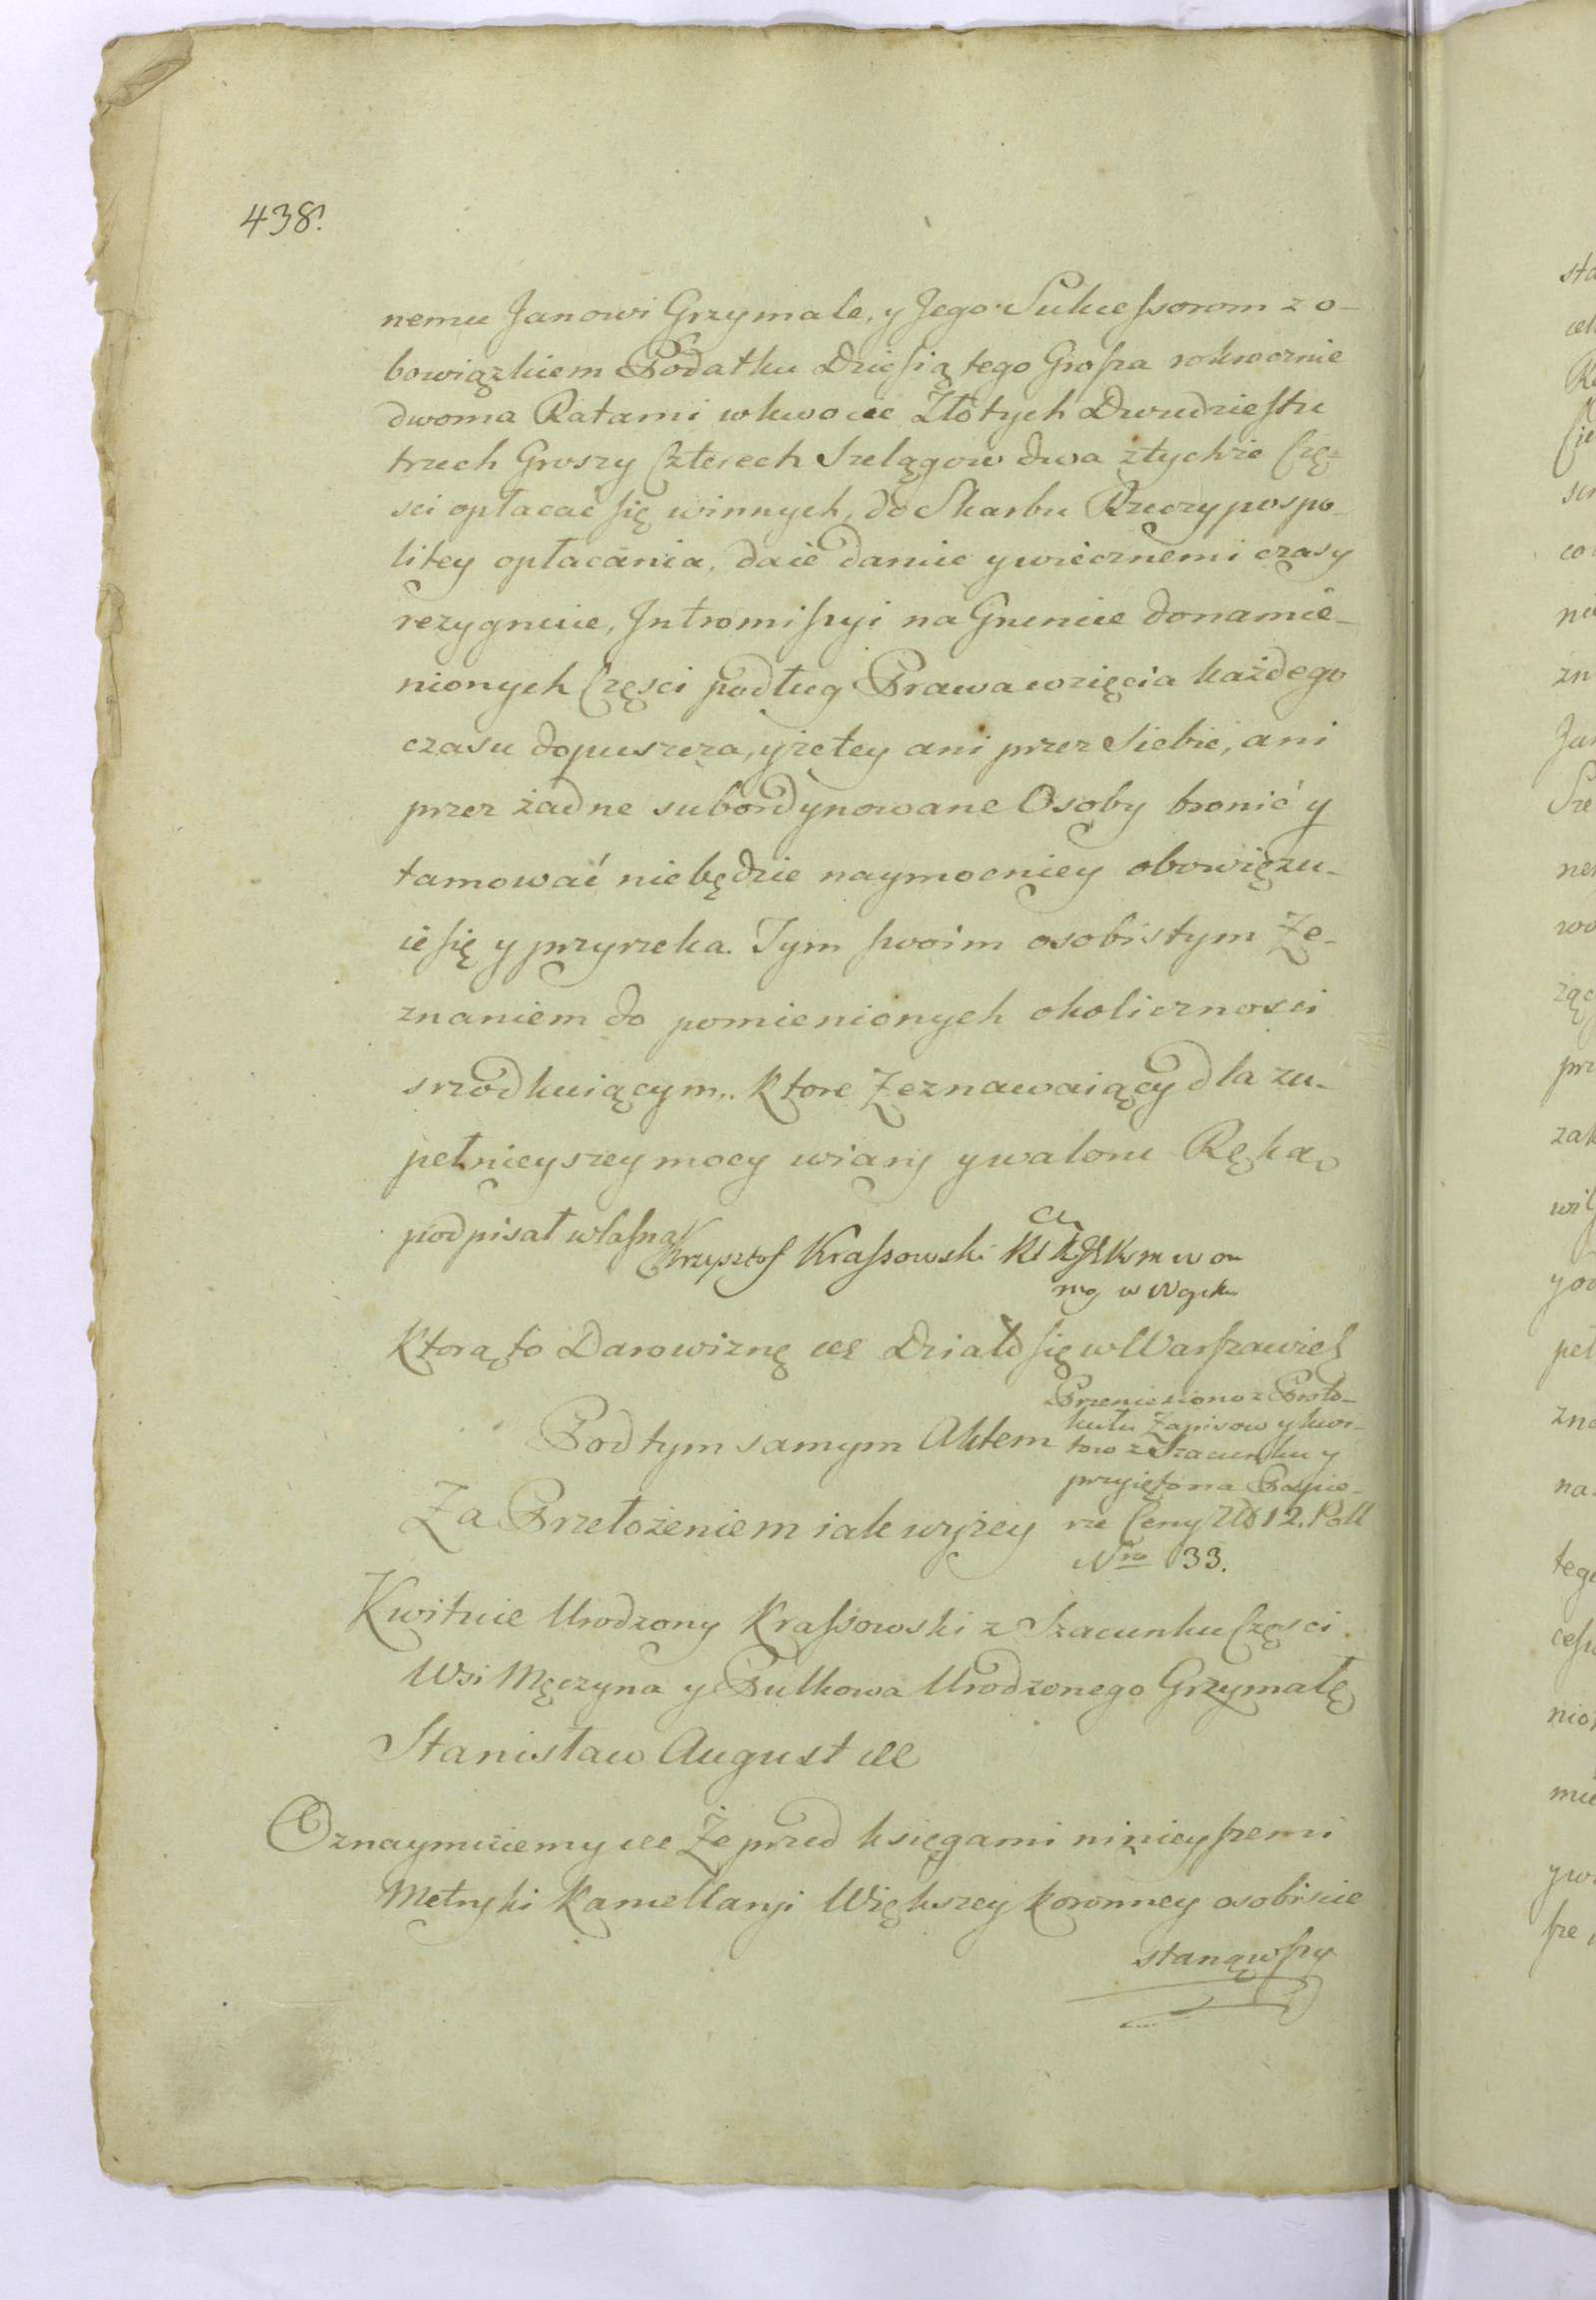 438.
nemu Janowi Grzymale, y Jego Sukcessorom z o-
bowiązkiem Podatku Dziesiątego Grosza rokrocznie
dwoma Ratami w kwocie Złotych Dwudziestu
trzech Groszy Czterech Szelągow dwa z tychże Czę-
sci opłacać się winnych, do Skarbu Rzeczypospo-
litey opłacania, daie daruie y wiecznemi czasy
rezygnuie, Intromissyi na Gruncie donamie-
nionych Częsci podług Prawa wzięcia każdego
czasu dopuszcza, y że tey ani przez siebie, ani
przez żadne subordynowane Osoby bronić y
tamować niebędzie naymocniey obowięzu-
ie się y przyrzeka. Tym swoim osobistym Ze-
znaniem do pomienionych okolicznosci
srzodkuiącym. Ktore Zeznawaiący dla zu-
pełnieyszey mocy wiary y waloru Ręką
podpisał własną Krzysztof Krassowski
Ktorą to Darowiznę etc Działo się w Warszawie
Przeniesiono z Proto-
kułu Zapisow y kwi-
tow z Szacunku y
przyięto na Papie-
rze Ceny Zło 12. Poll
Nro 33.
Pod tym samym Aktem
Za Przełożeniem iak wyżey
Kwituie Urodzony Krassowski z Szacunku Częsci
Wsi Męczyna y Pułkowa Urodzonego Grzymałę
Stanisław August etc
Oznaymuiemy etc Że przed księgami ninieyszemi
Metryki Kancellaryi Większey Koronney osobiscie
stanąwszy